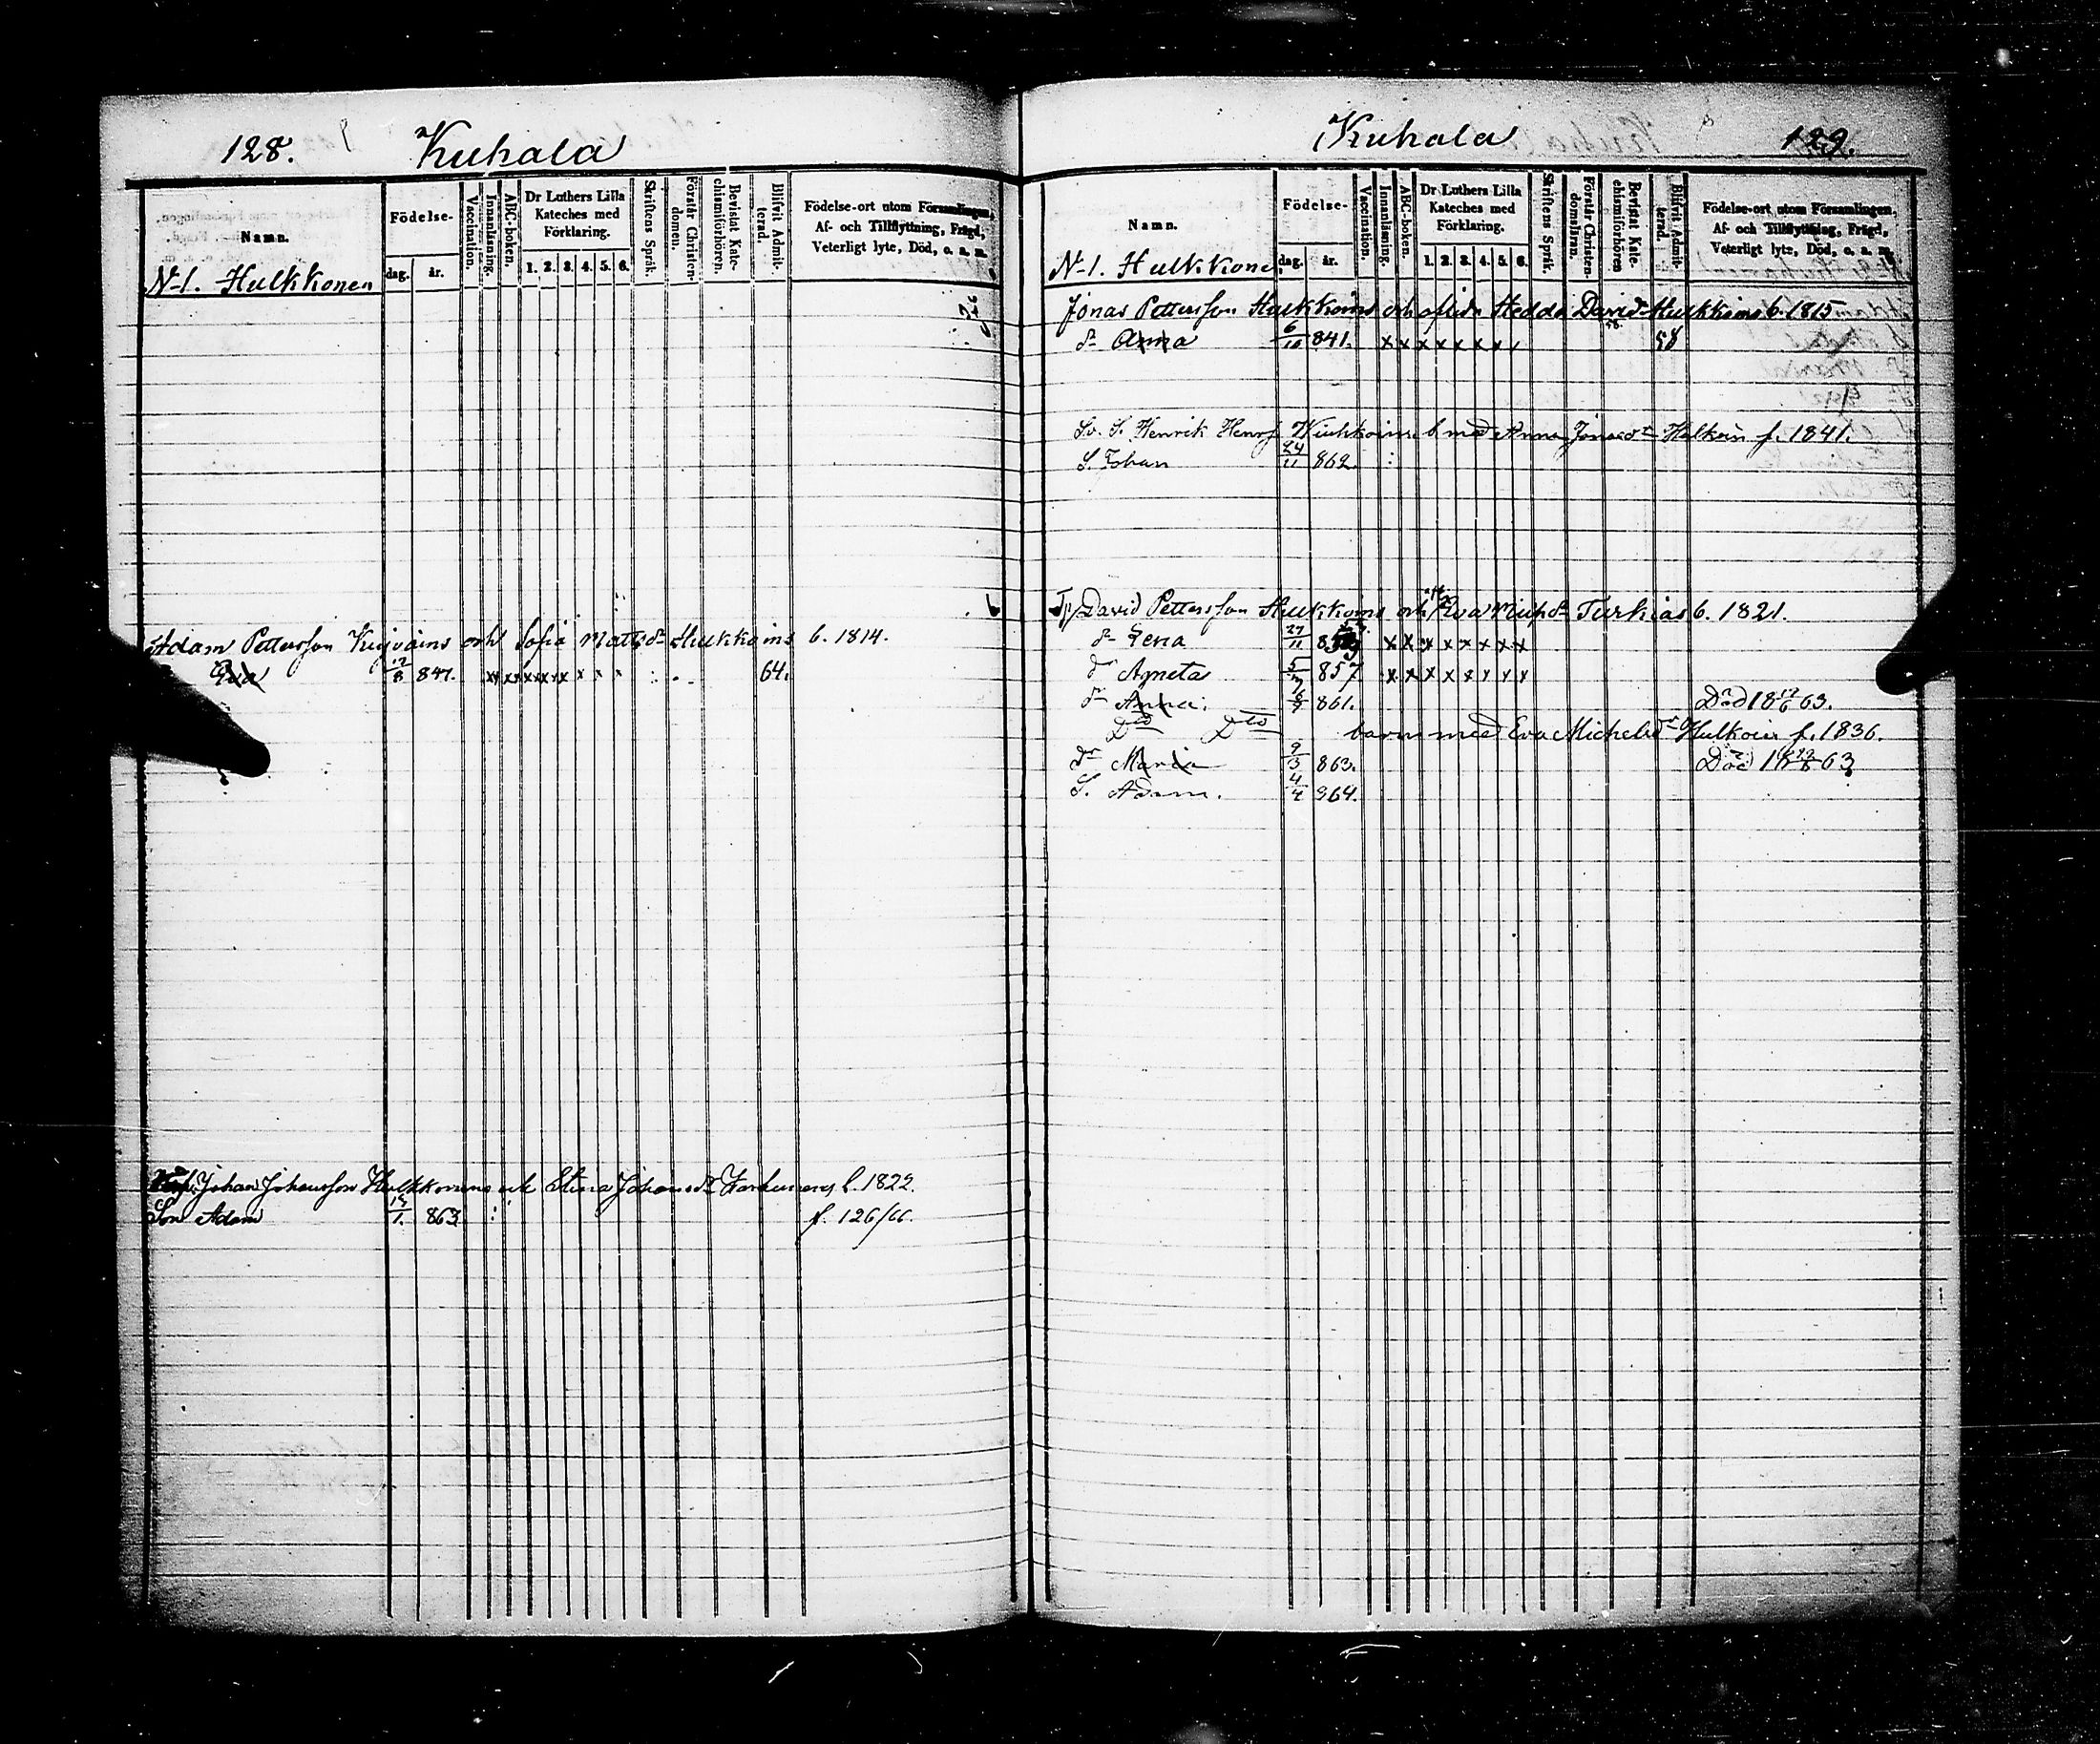 128. Kuhala
Namn.
Födelse-
dag. år.
Vaccination.
Innanläsning.
ABC-boken.
Dr Luthers Lilla Kateches med Förklaring.
1. 2. 3. 4. 5. 6.
Skriftens Språk.
Förstår Christendomen.
Bevistat Katechismiförhören.
Blifvit Admitterad.
Födelse-ort utom Församlingen,
Af- och Tillflyttning, Frägd,
Veterligt lyte, Död, o. a. m.
N-1. Hulkkonen
Adam Pettersson och Sofia Matts dr Hulkkoins b. 1814.
Eva 12/8 847. x x x x x x x x x 64.
Johan Johansson Hulkkonens och Stina Johans dr b. 1822.
Son Adam 863 f. 126/66.
Kuhala 129.
Namn.
Födelse-
dag. år.
Vaccination.
Innanläsning.
ABC-boken.
Dr Luthers Lilla Kateches med Förklaring.
1. 2. 3. 4. 5. 6.
Skriftens Språk.
Förstår Christendomsläran.
Bevistat Katechismiförhören
Blifvit Admitterad.
Födelse-ort utom Församlingen,
Af- och Tillflyttning, Frägd,
Veterligt lyte, Död, o. a. m.
N-1. Hulkkone
Jonas Pettersson Hulkkoins och aflidn Hedda Davids dr Hulkkoins b. 1815
dr Anna 6/10 841. x x x x x x x x 58
S. Henrik Henrs b med Anna Jonas dr Hulkoin f. 1841.
S. Johan 24/11 862
David Pettersson Hulkkoins och Eva Mich dr Turkias b. 1821.
dr Lena 27/11 x x x x x x x x
dr Agneta 5/7 857 x x x x x x x x
dr Anna. 6/7 861. Död 18 12/6 63.
Dto Dto barn med Eva Michels dr Hulkoin f. 1836.
dr Maria 9/3 863. Död 63
S. Adam. 4/4 864.